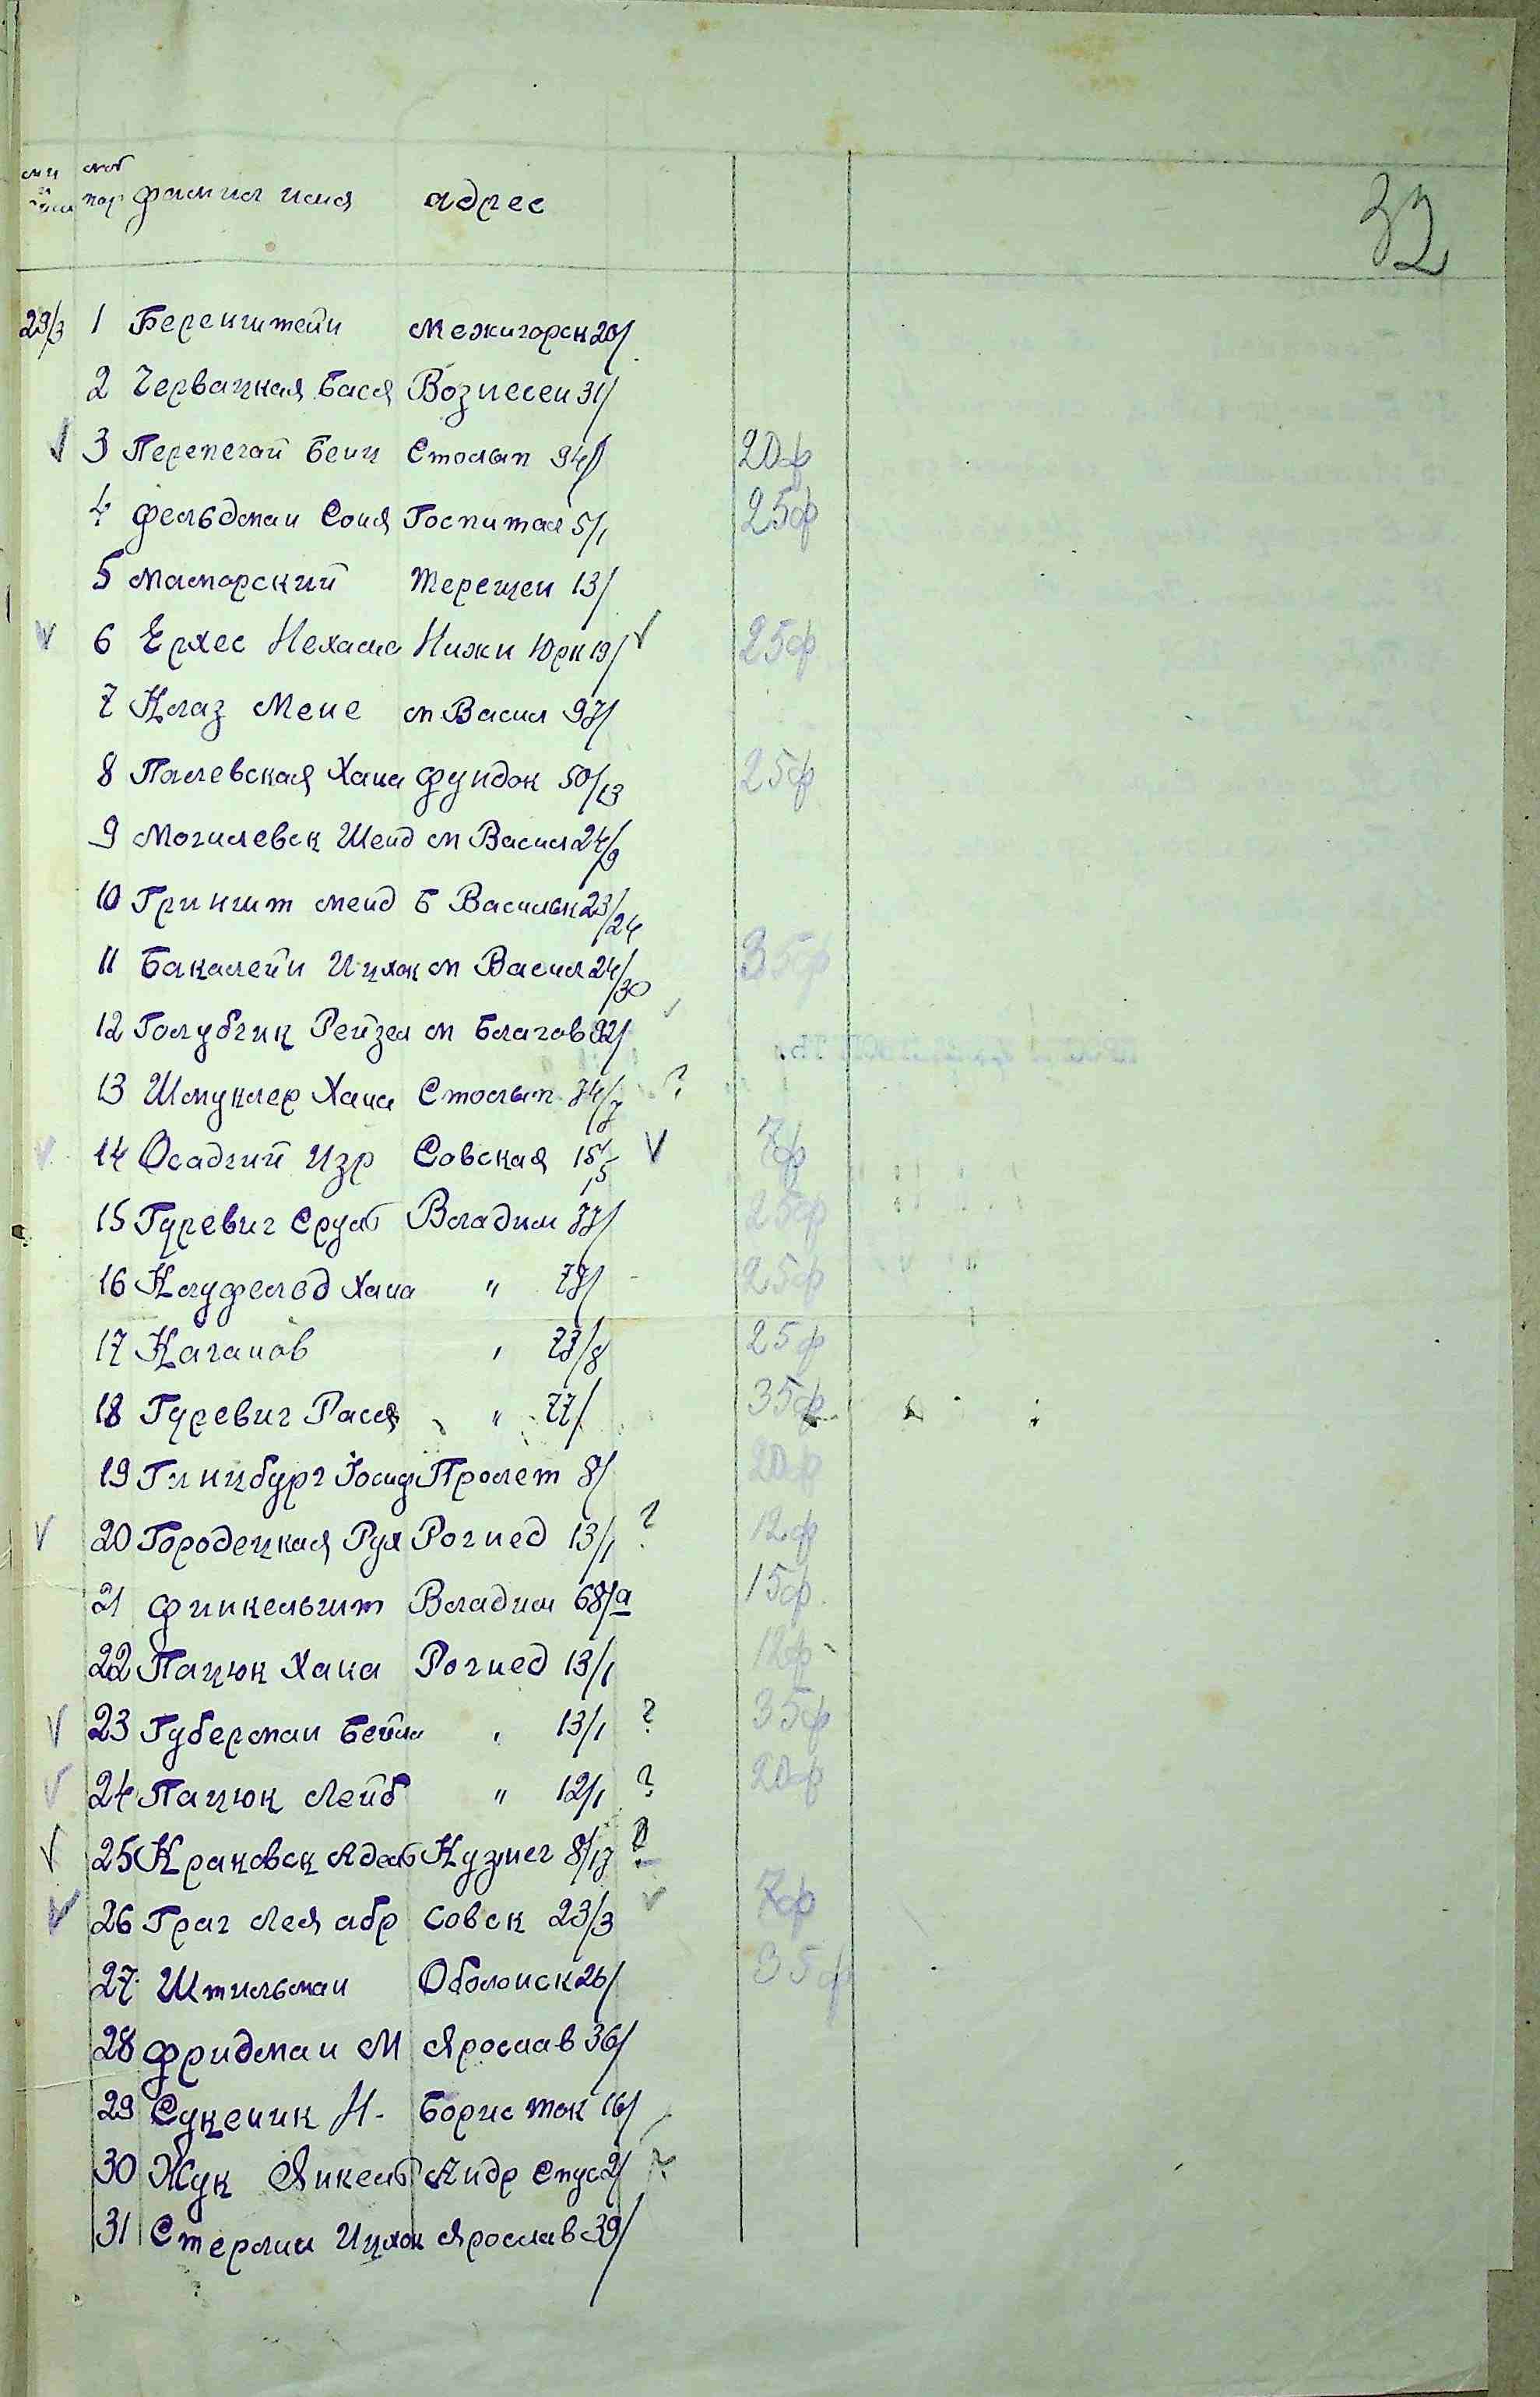 32
пор фамил имя адрес
29/3 1 Беренштейн Межигорск 20/
2 Червацкая Бася Вознесен 31/
V 3 Перепечай Бенц Столып 94/ 20ф
4 Фельдман Соня Госпитал 5/1 25ф
5 Маморский Терещен 13/
V 6 Ерхес Нехама Нижн Юрк 19/ V 25ф
7 Клаз Мене м Васил 97/
8 Палевская Хана Фундок 50/13 25ф
9 Могилевск Шейд м Васил 24/9
10 Гриншт Менд Б Васильк 23/24
11 Бакалейн Ицхок м Васил 24/30 35ф
12 Голубчик Рейзел м Благов 92/
13 Шмуклер Хана Столып 74/7 ?
V 14 Осадчий Изр Совская 15/5 V 7ф
15 Гуревич Сруль Владим 77/ 25ф
16 Клуфельд Хана " 77/ 25ф
17 Каганов " 73/8 25ф
18 Гуревич Рася " 77/ 35ф
19 Гинцбург Иосиф Пролет 8/ 20ф
V 20 Городецкая Рух Рогнед 13/1 ? 12ф
21 Финкельшт Владим 68/а 15ф
22 Пацюк Хана Рогнед 13/1 12ф
V 23 Губерман Бейла " 13/1 ? 35ф
V 24 Пацюк Лейб " 12/1 ? 20ф
V 25 Краковск Адель Кузнеч 8/17 ?
V 26 Грач Лея Абр Совск 23/3 V 7ф
27 Штильман Оболонск 26/ 35ф
28 Фридман М Ярослав 36/
29 Сукеник Н- Борис Ток 16/
30 Жук Янкель Андр Спус 2/ ?
31 Стерлин Ицхок Ярослав 39/